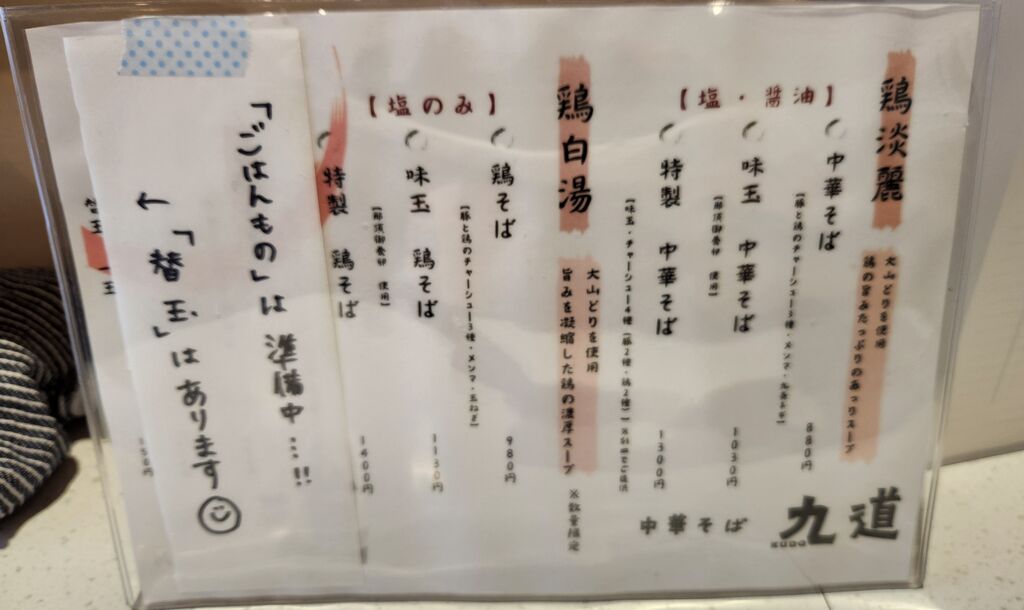 鶏淡麗
大山どりを使用
鶏の旨みたっぷりのあっさりスープ
【塩・醤油】
中華そば
880円
味玉 中華そば
1030円
【那須御養卵 使用】
特製 中華そば
1300円
鶏白湯
大山どりを使用
旨みを凝縮した鶏の濃厚スープ
※数量限定
【塩のみ】
鶏そば
980円
【豚と鶏のチャーシュー3種・メンマ・玉ねぎ】
味玉 鶏そば
1130円
【那須御養卵 使用】
特製 鶏そば
1400円
「ごはんもの」は準備中…!!
←「替玉」はあります
150円
中華そば
九道
KUDO